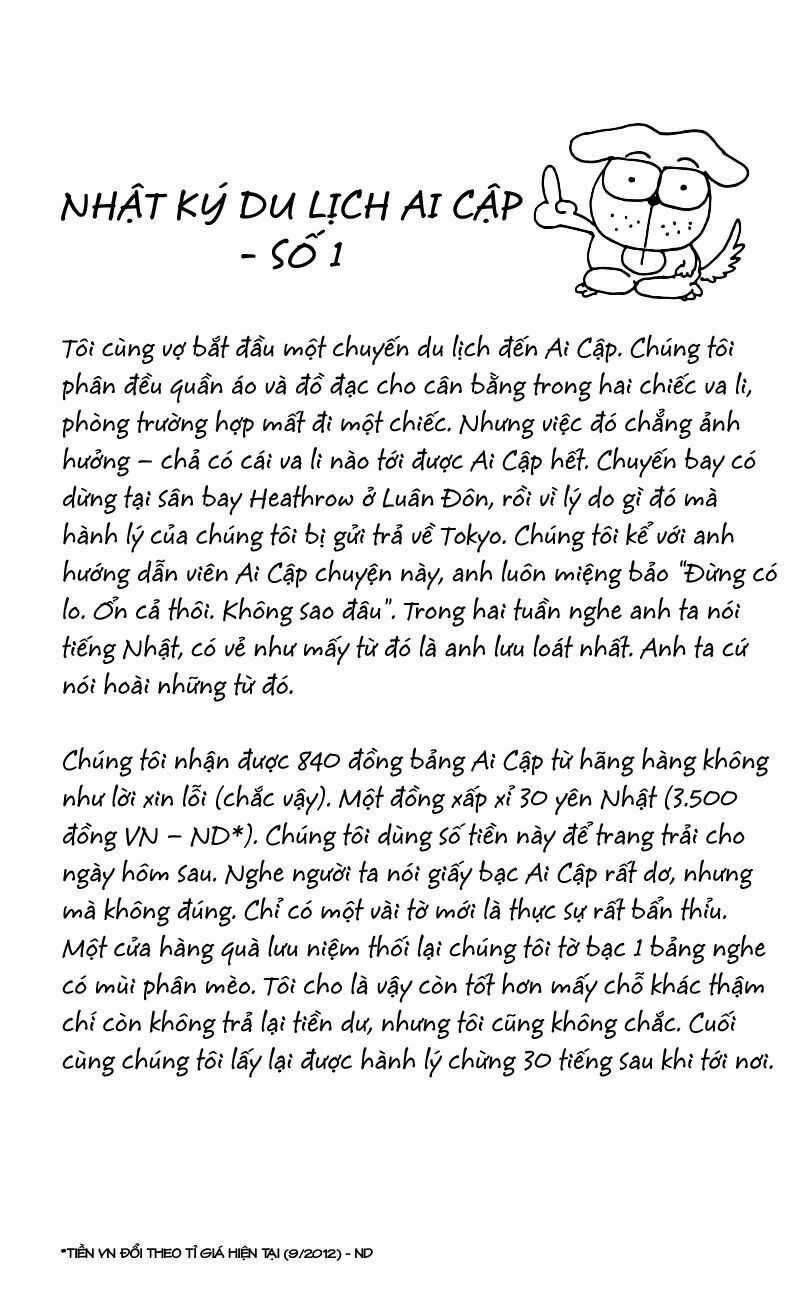 NHẬT KÝ DU LỊCH AI CẬP
- SỐ 1
Tôi cùng vợ bắt đầu một chuyến du lịch đến Ai Cập. Chúng tôi
phân đều quần áo và đồ đạc cho cân bằng trong hai chiếc va li,
phòng trường hợp mất đi một chiếc. Nhưng việc đó chẳng ảnh
hưởng – chả có cái va li nào tới được Ai Cập hết. Chuyến bay có
dừng tại sân bay Heathrow ở Luân Đôn, rồi vì lý do gì đó mà
hành lý của chúng tôi bị gửi trả về Tokyo. Chúng tôi kể với anh
hướng dẫn viên Ai Cập chuyện này, anh luôn miệng bảo "Đừng có
lo. Ổn cả thôi. Không sao đâu". Trong hai tuần nghe anh ta nói
tiếng Nhật, có vẻ như mấy từ đó là anh lưu loát nhất. Anh ta cứ
nói hoài những từ đó.
Chúng tôi nhận được 840 đồng bảng Ai Cập từ hãng hàng không
như lời xin lỗi (chắc vậy). Một đồng xấp xỉ 30 yên Nhật (3.500
đồng VN – ND*). Chúng tôi dùng số tiền này để trang trải cho
ngày hôm sau. Nghe người ta nói giấy bạc Ai Cập rất dơ, nhưng
mà không đúng. Chỉ có một vài tờ mới là thực sự rất bẩn thỉu.
Một cửa hàng quà lưu niệm thối lại chúng tôi tờ bạc 1 bảng nghe
có mùi phân mèo. Tôi cho là vậy còn tốt hơn mấy chỗ khác thậm
chí còn không trả lại tiền dư, nhưng tôi cũng không chắc. Cuối
cùng chúng tôi lấy lại được hành lý chừng 30 tiếng sau khi tới nơi.
*TIỀN VN ĐỔI THEO TỈ GIÁ HIỆN TẠI (9/2012) - ND